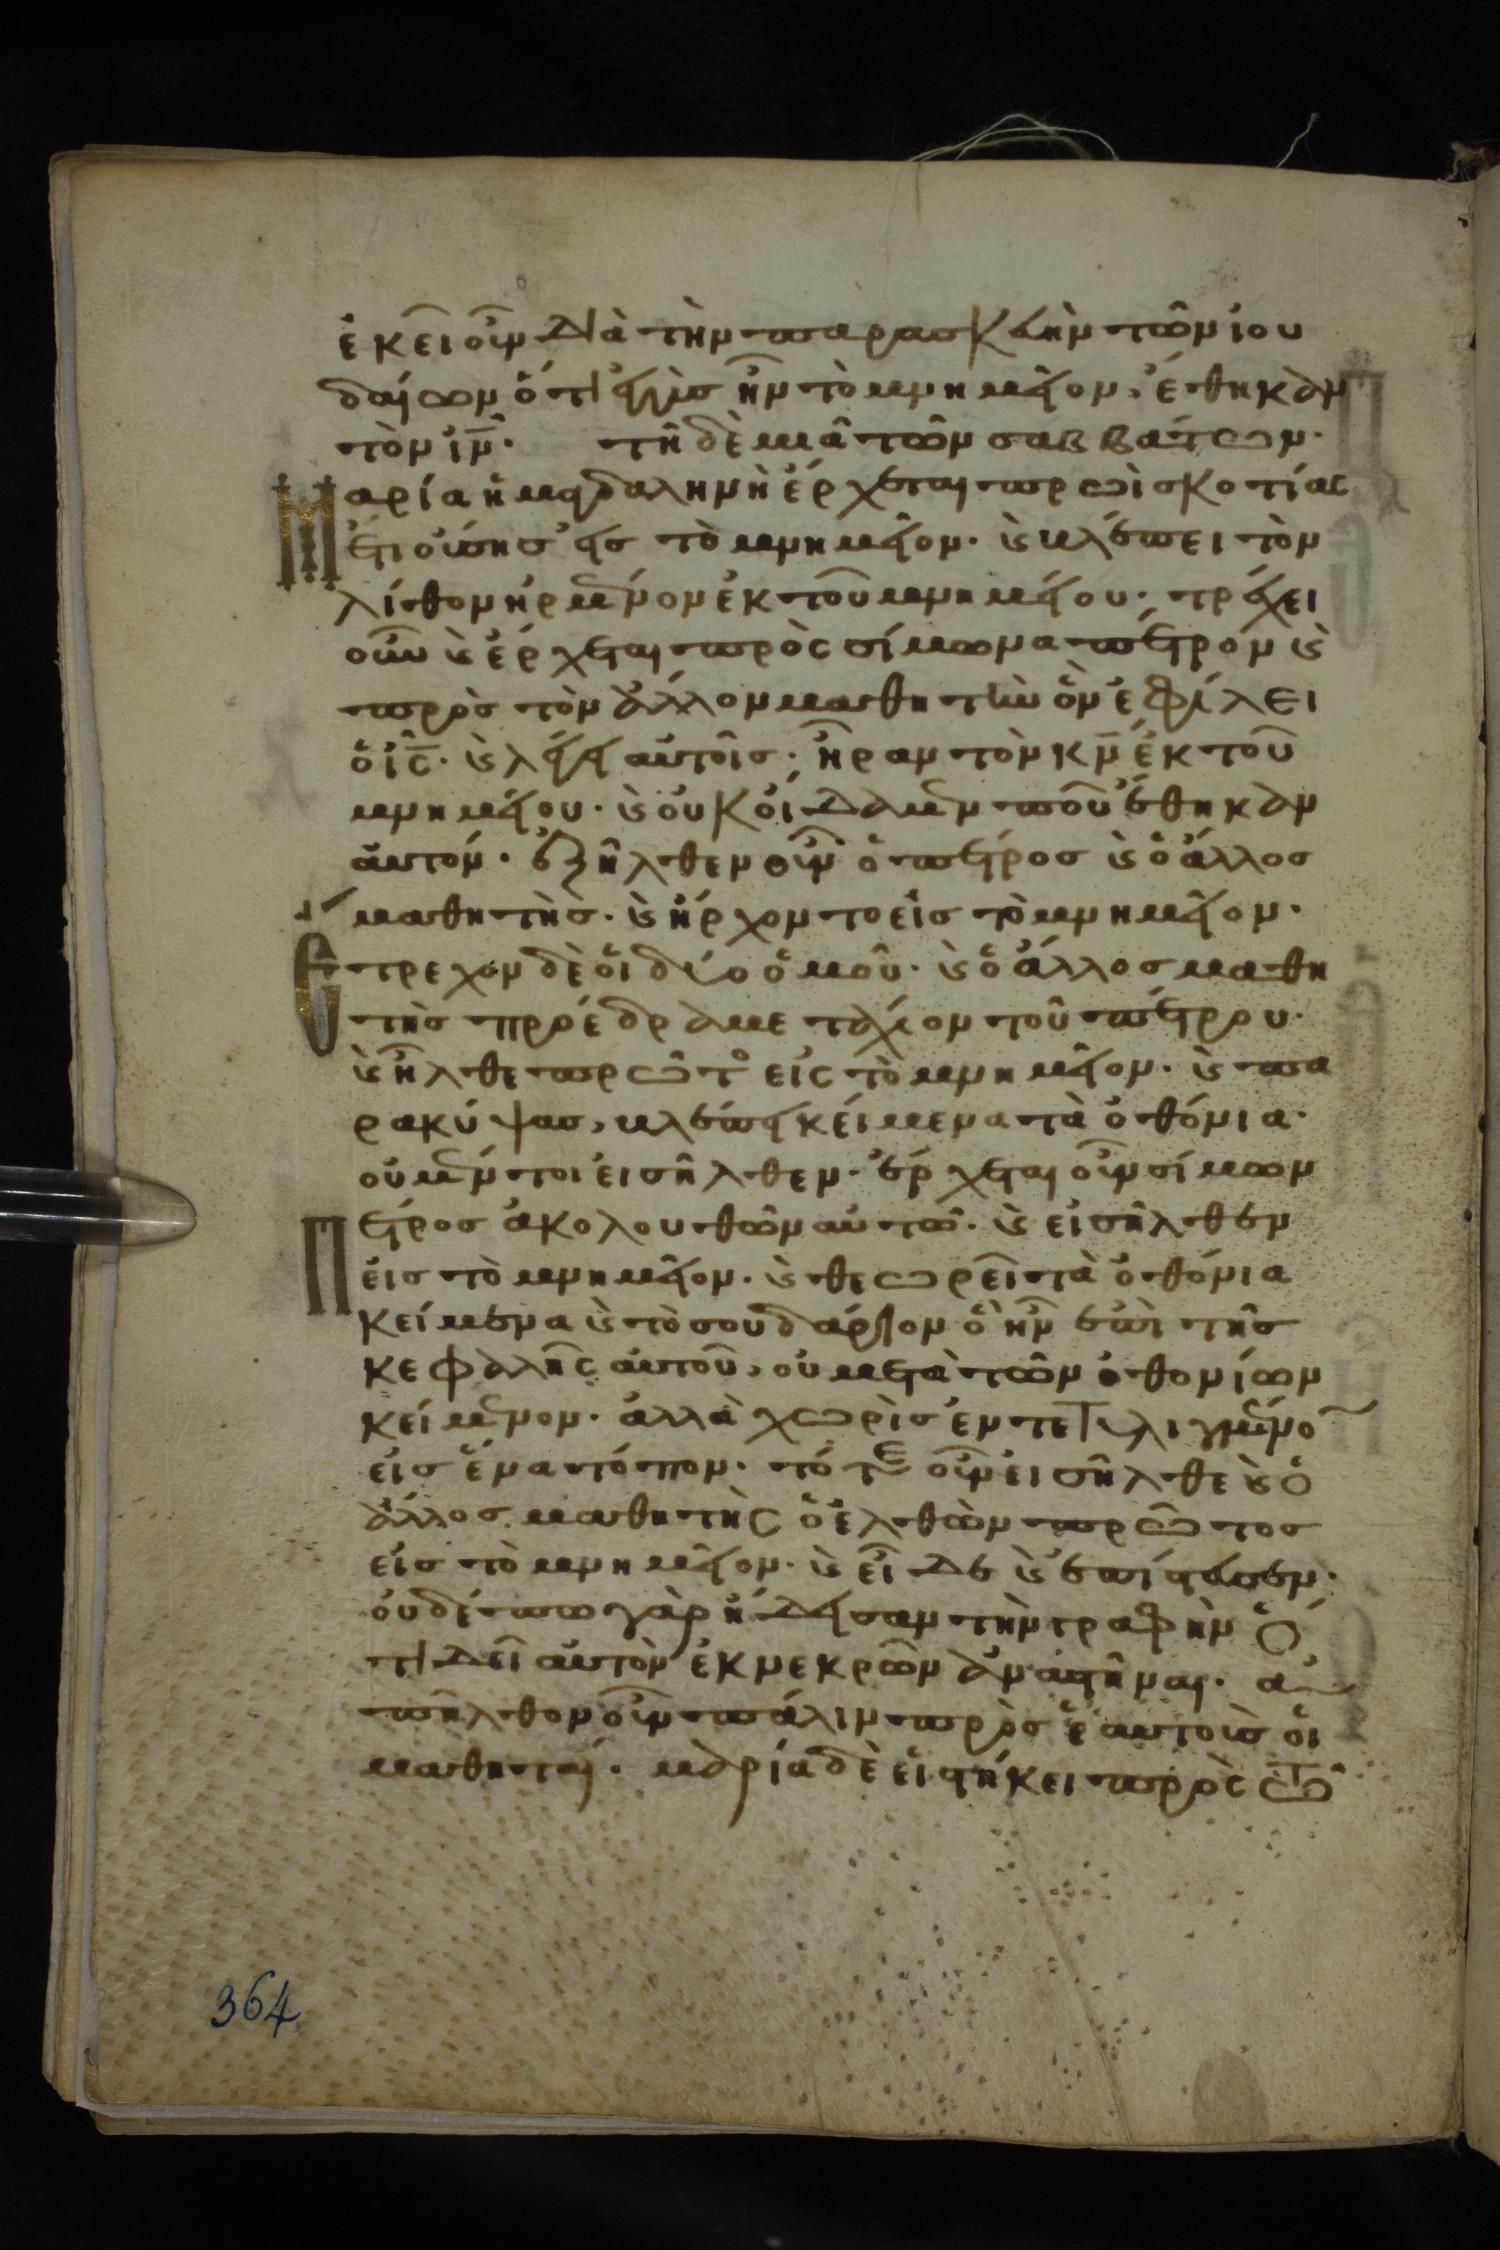 ἐκεῖ οὖν διὰ τὴν παρασκευὴν τῶν ἰου
δαίων ὅτι ἐγγὺς ἦν τὸ μνημεῖον, ἔθηκαν
τὸν ιν̅· τῆ δὲ μιᾶ τῶν σαββάτων·
Μαρία ἡ μαγδαληνὴ ἔρχεται πρωῒ σκοτίας
ἔτι οὔσης εἰς τὸ μνημεῖον· ϗ βλέπει τὸν
λίθον ἠρμένον ἐκ τοῦ μνημείου· τρέχει
οὖν ϗ ἔρχεται πρὸς σίμωνα πέτρον ϗ
πρὸς τὸν ἄλλον μαθητὴν ὃν ἐφίλει
ὁ ις̅· ϗ λέγει αὐτοῖς· ἦραν τὸν κν̅ ἐκ τοῦ
μνημείου· ϗ οὐκ οἴδαμεν ποῦ ἔθηκαν
αὐτόν· ἐξῆλθεν οὖν ὁ πέτρος ϗ ὁ ἄλλος
μαθητὴς· ϗ ἤρχοντο εἰς τὸ μνημεῖον·
Ἔτρεχον δὲ οἱ δύο ὁμοῦ· ϗ ὁ ἄλλος μαθη
τὴς προέδραμε τάχιον τοῦ πέτρου·
ϗ ἦλθε πρῶτο εἰς τὸ μνημεῖον· ϗ πα
ρακύψας, βλέπει κείμενα τὰ ὀθόνια·
οὐ μέντοι εἰσῆλθεν· ἔρχεται οὖν σίμων
Πέτρος ἀκολουθῶν αὐτῶ· ϗ εἰσῆλθεν
εἰς τὸ μνημεῖον· ϗ θεωρεῖ τὰ ὀθόνια
κείμενα ϗ τὸ σουδάριον ὃ ἦν ἐπὶ τῆς
κεφαλῆς αὐτοῦ, οὐ μετὰ τῶν ὀθονίων
κείμενον· ἀλλὰ χωρὶς ἐντετυλιγμένο
εἰς ἕνα τόπον· τότε οὖν εἰσῆλθε ϗ ὁ
ἄλλος μαθητὴς ὁ ἐλθὼν πρῶτος
εἰς τὸ μνημεῖον· ϗ εἶδε ϗ ἐπίστευσεν·
οὐδέπω γὰρ ἤδεισαν τὴν γραφὴν ὅ
τι δεῖ αὐτὸν ἐκ νεκρῶν ἀναστῆναι· ἀ
πῆλθον οὖν πάλιν πρὸς ἑαυτοὺς οἱ
μαθηταί· μαρία δὲ εἱστήκει πρὸς τῶ
364